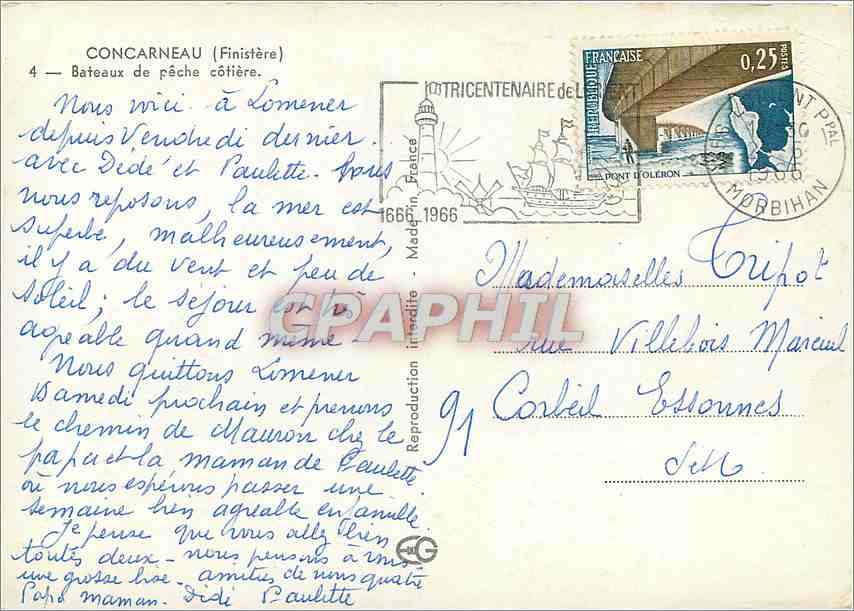 CONCARNEAU (Finistère)
4 — Bateaux de pêche côtière.
Nous voici à Lomener
depuis Vendredi dernier
avec Dédé et Paulette. Tous
nous reposons, la mer est
superbe, malheureusement,
il y a du vent et peu de
soleil; le séjour est très
agréable quand même -
Nous quittons Lomener
Samedi prochain et prenons
le chemin de Mauron chez le
papa et la maman de Paulette
où nous espérons passer une
semaine bien agréable en famille.
Je pense que vous allez bien
toutes deux - nous pensons à vous
une grosse bise - amitiés de nous quatre
Papa maman. Dédé Paulette
Reproduction interdite - Made in France
TRICENTENAIRE de LORIENT
1666 1966
REPUBLIQUE FRANÇAISE
0,25
POSTES
PONT D'OLÉRON
LORIENT PPAL
1966
MORBIHAN
Mademoiselles Tripot
rue Villebois Mareuil
91 Corbeil Essonnes
S&M
CPAPHIL